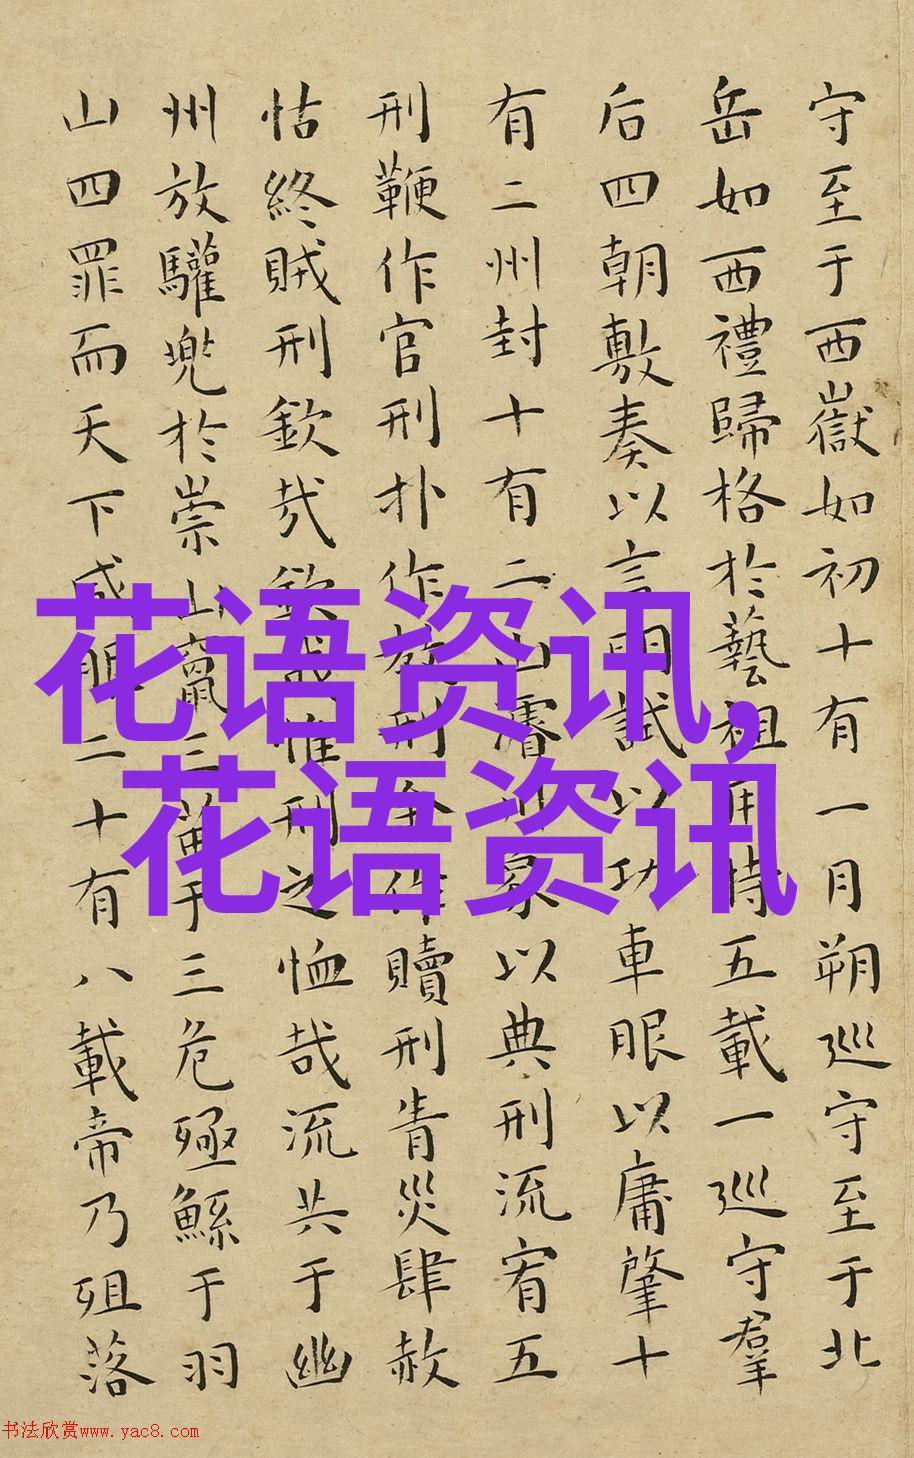 守至于西嶽如初十有一月朔巡守至于北
岳如西禮歸格於藝祖用特五載一巡守羣
后四朝敷奏以言明試以功車眼以庸肇十
有二州封十有二山濬川象以典刑流宥五
刑鞭作官刑扑作教刑金作贖刑眚災肆赦
怙終賊刑欽哉欽哉惟刑之恤哉流共于幽
州放驩兜於崇山竄三苗于三危殛鯀于羽
山四罪而天下咸服二十有八載帝乃殂落
花语资讯,
花语资讯
书法欣赏www.yac8.com